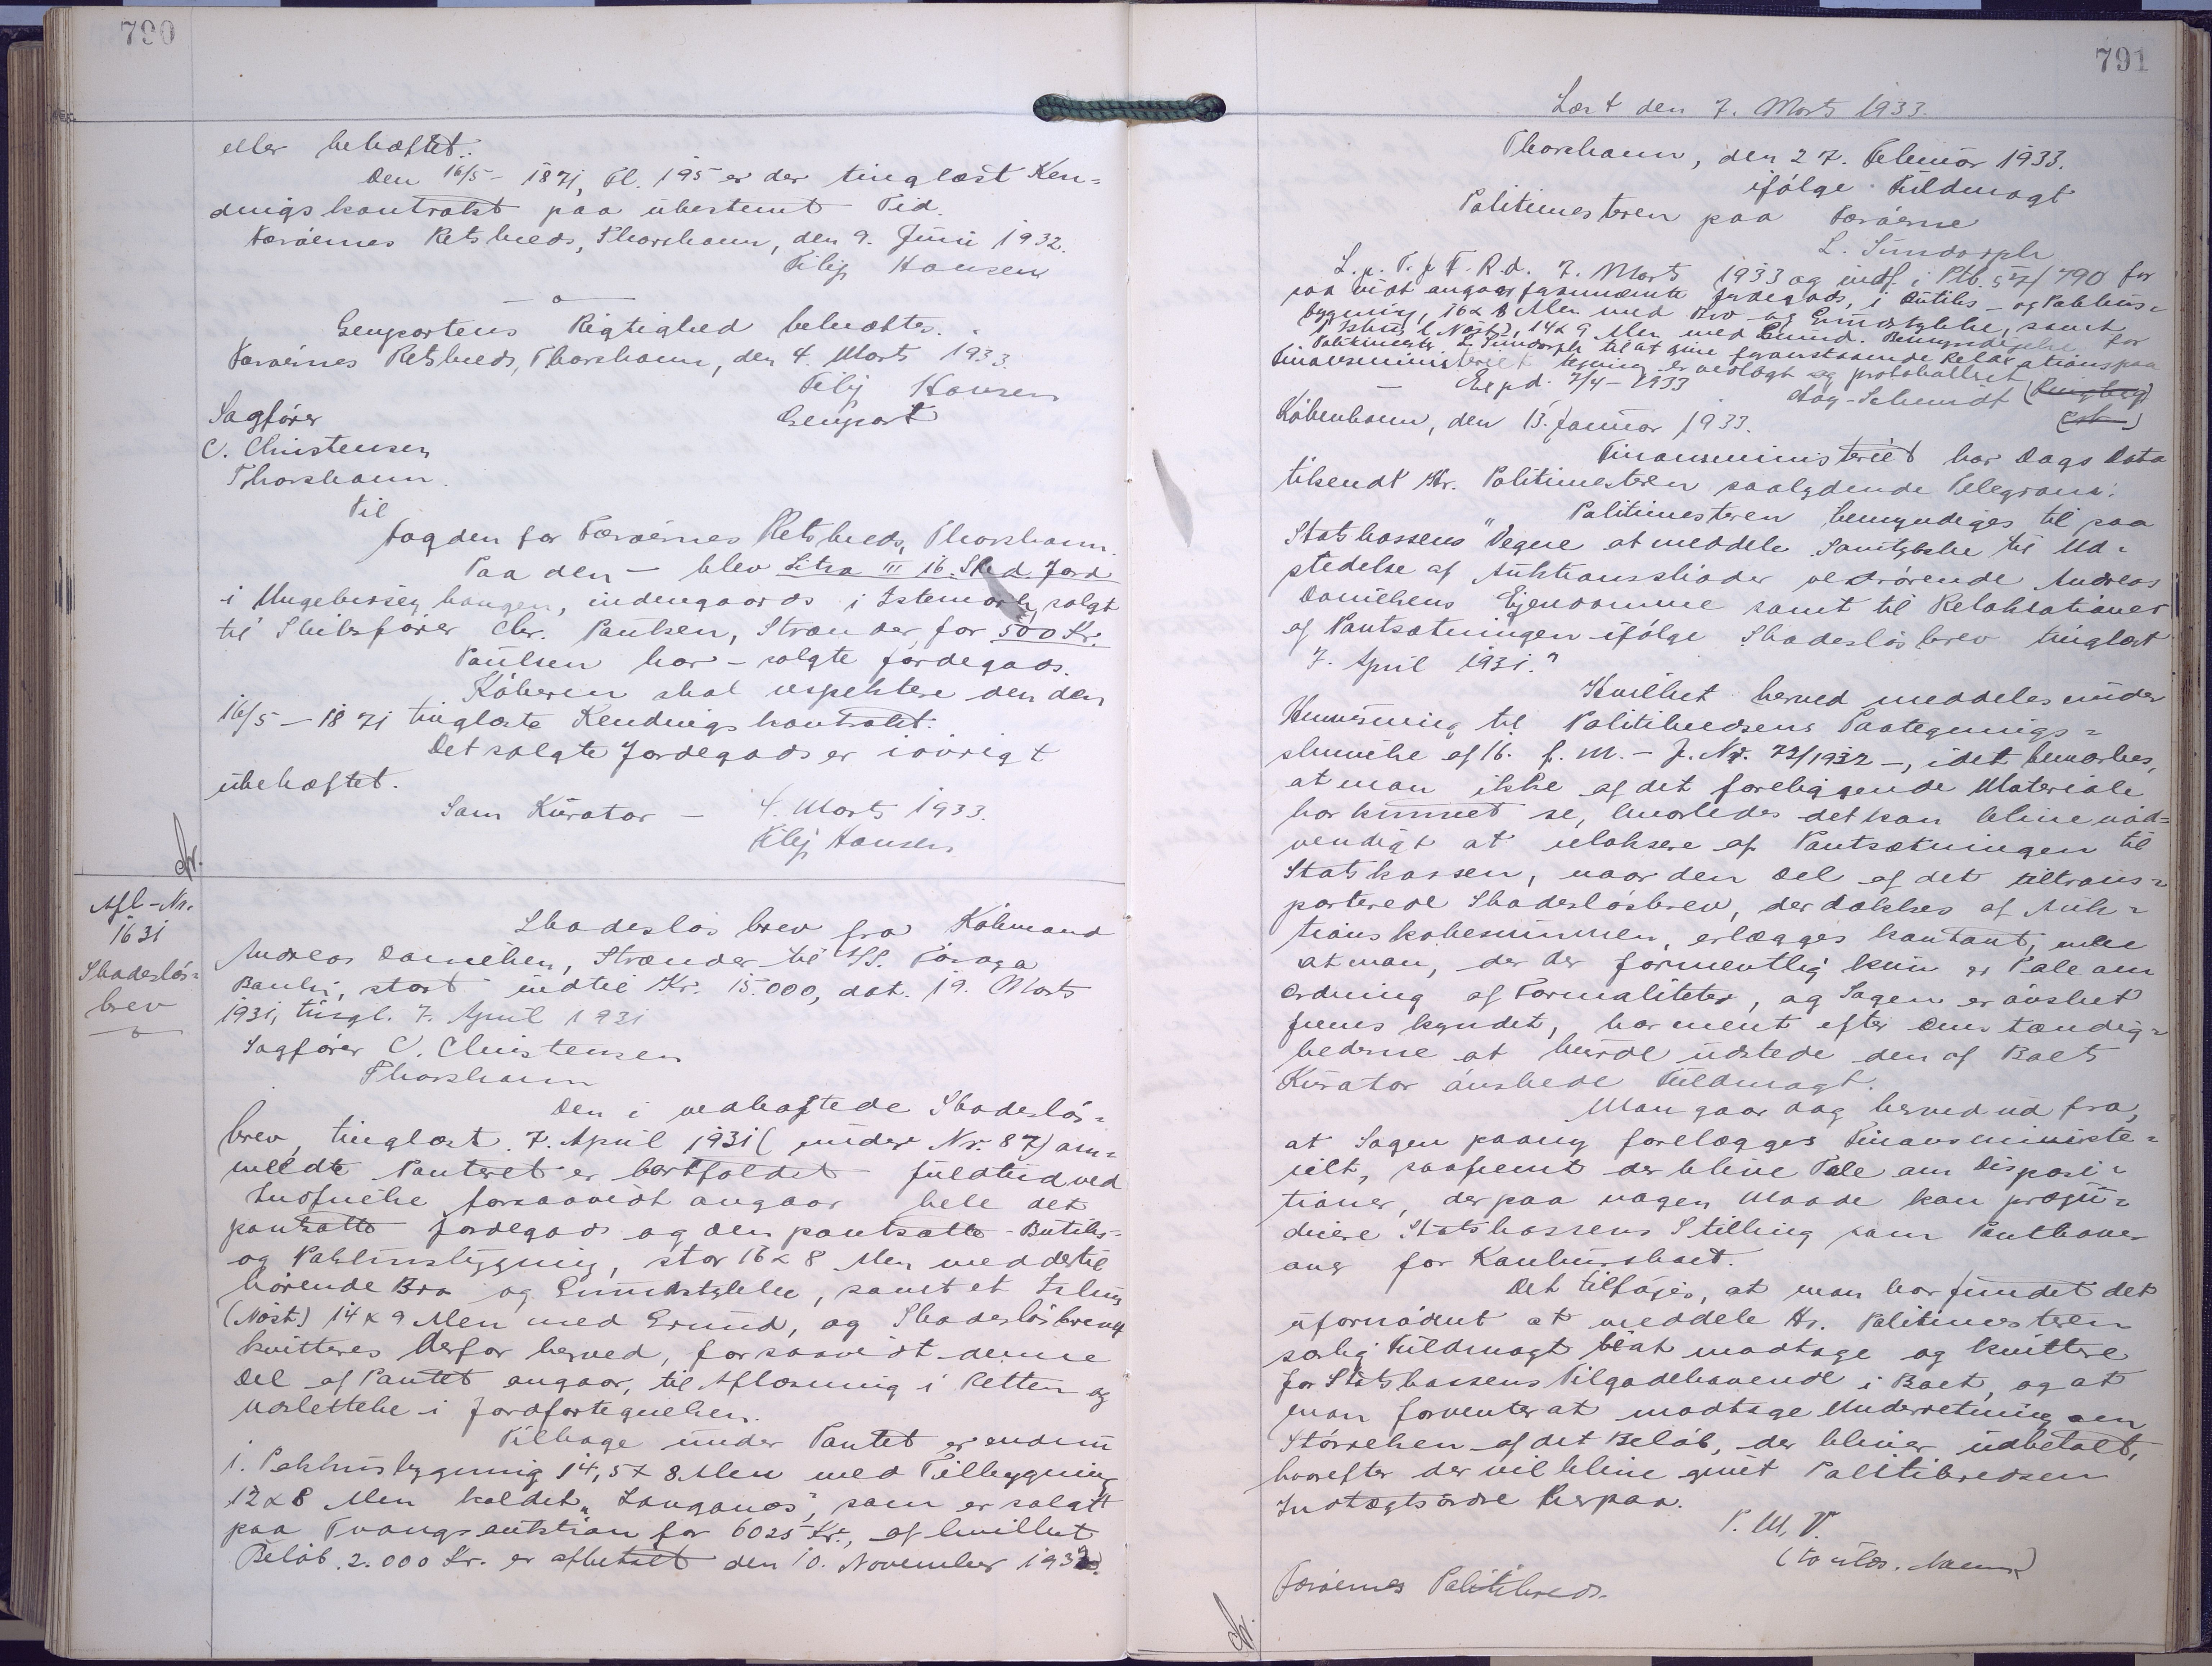 790
eller behæftet.
Den 16/5 - 1871, Fl. 195 er der tinglæst Ken=
dingskontrakt paa ubestemt Tid.
Færøernes Retskreds, Thorshavn, den 9. Juni 1932.
Filip Hansen
Genpartens Rigtighed bekræftes.
Færøernes Retskreds, Thorshavn, den 4. Marts 1933.
Filip Hansen
Genpart
Sagfører
C. Christensen
Thorshavn.
Til
Fogden for Færøernes Retskreds, Thorshavn.
Paa den — blev Litra III 16 Skd. Jord
i haugen, indengaards i solgt
til Skibsfører Chr. Paulsen, Strænder, for 500 Kr.
Paulsen har - solgte Jordegods.
Køberen skal respektere den den
16/5 - 1871 tinglæste Kendingskontrakt.
Det solgte Jordegods er iøvrigt
ubehæftet.
Som Kurator — 4. Marts 1933.
Filip Hansen
Afl-Nr.
1631
Skadesløs=
brev
Skadesløsbrev fra Købmand
Andreas Danielsen, Strænder til A/S. Føroya
Banki, stort indtil Kr. 15.000, dat. 19. Marts
1931, tingl. 7. April 1931
Sagfører C. Christensen
Thorshavn
Den i vedhæftede Skadesløs=
brev, tinglæst 7. April 1931 (under Nr. 87) om=
meldte Panteret er bortfaldet fuldtud ved
Indfrielse forsaavidt angaar hele det
pantsatte Jordegods og den pantsatte Butiks=
og Pakhusbygning, stor 16 x 8 Alen med dertil
hørende Bro og Grundstykke, samt et Ishus
(Nøst) 14 x 9 Alen med Grund, og Skadesløsbrevet
kvitteres derfor herved, forsaavidt denne
Del af Pantet angaar, til Aflæsning i Retten og
Udslettelse i Jordfortegnelsen.
Tilbage under Pantet er endnu
1. Pakhusbygning 14,5 x 8 Alen med Tilbygning
12 x 8 Alen kaldet "Langanes", som er solgt
paa Tvangsauktion for 6025 Kr., af hvilket
Beløb 2.000 Kr. er afbetalt den 10. November 1932.
791
Læst den 7. Marts 1933.
Thorshavn, den 27. Februar 1933.
ifølge Fuldmagt
Politimesteren paa Færøerne
L. Sundorph
L. p. T. f. F. R. d. 7. Marts 1933 og indf. i Ptb. 57/790 for
saa vidt angaar fornævnte Jordegods, i Butiks- og Pakhus=
bygning, 16 x 8 Alen med Bro og Grundstykke, samt
1 Ishus (Nøst), 14 x 9 Alen med Grund. Bemyndigelse for
Politimester L. Sundorph til at give foranstaaende Relaxations paa
Finansministeriets Vegne er forelagt og protokolleret
Expd. 7/4 - 1933
København, den 13. Januar 1933.
Finansministeriet har Dags Dato
tilsendt Hr. Politimesteren saalydende Telegram:
"Politimesteren bemyndiges til paa
Statskassens Vegne at meddele Samtykke til Ud=
stedelse af Auktionsskøder vedrørende Andreas
Danielsens Ejendomme samt til Relaksationer
af Pantsætningen ifølge Skadesløsbrev tinglæst
7. April 1931."
Hvilket herved meddeles under
Henvisning til Politikredsens Paategnings=
skrivelse af 16. f. M. - J. Nr. 72/1932 -, idet bemærkes,
at man ikke af det foreliggende Materiale
har kunnet se, hvorledes det kan blive nød=
vendigt at relaksere af Pantsætningen til
Statskassen, naar den Del af det tiltrans=
porterede Skadesløsbrev, der dækkes af Auk=
tionskøbesummen, erlægges kontant, men
at man, da der formentlig kun er Tale om
Ordning af Formaliteter, og Sagen er ønsket
fremskyndet, har ment efter Omstændig=
hederne at burde udstede den af Boets
Kurator ønskede Fuldmagt.
Man gaar dog herved ud fra,
at Sagen paany forelægges Finansministe=
riet, saafremt der bliver Tale om Disposi=
tioner, der paa nogen Maade kan præju=
dicere Statskassens Stilling som Panthaver
ang for Konkursboet.
Det tilføjes, at man har fundet det
ufornødent at meddele Hr. Politimesteren
særlig Fuldmagt til at modtage og kvittere
for Statskassens Tilgodehavende i Boet, og at
man forventer at modtage Underretning om
Størrelsen af det Beløb, der bliver udbetalt,
hvorefter der vil blive givet Politikredsen
Indtægtsordre herpaa.
P. M. V.
Færøernes Politikreds.